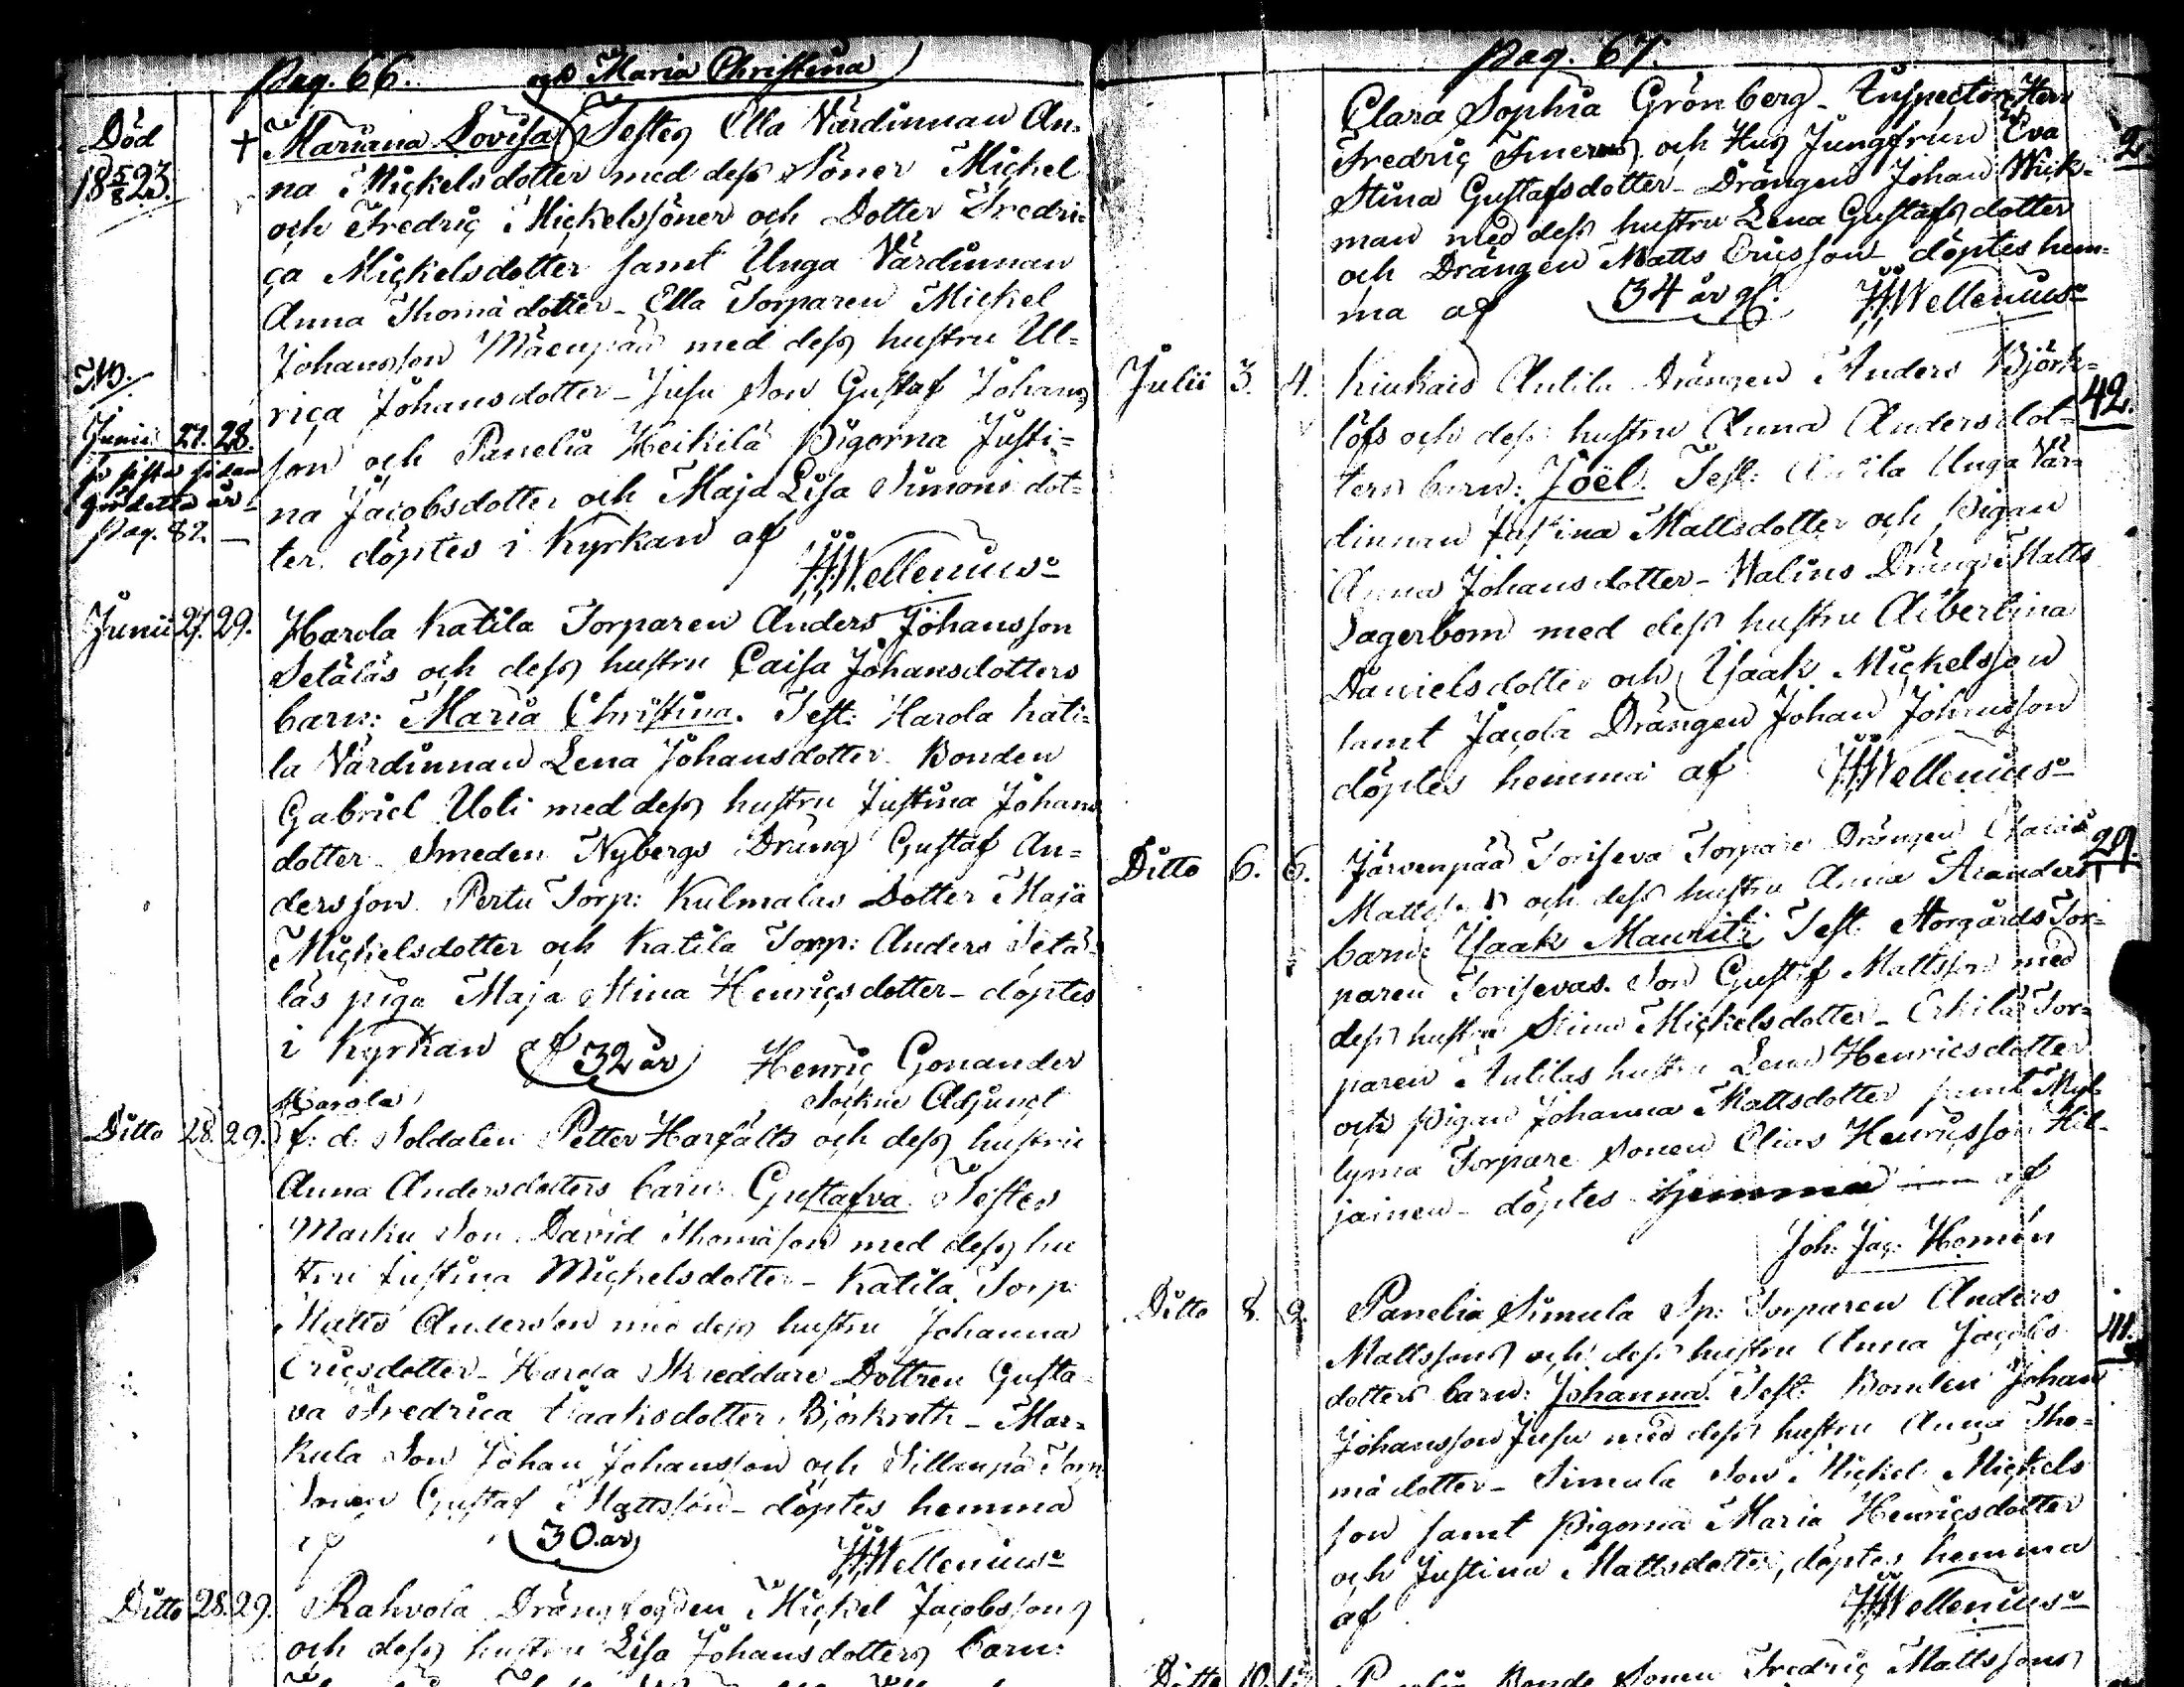 Pag. 66.
Maria Christina
Död
18 5/8 23.
† Mariana Lovisa Testes Ella Värdinnan An-
na Mickelsdotter med dess Söner Mickel
och Fredric Mickelssöner och Dotter Fredri-
ca Mickelsdotter samt Unga Värdinnan
Anna Thomä dotter - Ella Torparen Mickel
Johansson Mäenpää med dess hustru Ul-
rica Johansdotter - Jusu Son Gustaf Johans
son och Panelia Heikilä Pigorna Justi-
na Jacobsdotter och Maja Lisa Simons dot-
ter. döptes i Kyrkan af
Wellenius
NB.
Junii 27. 28.
på sista sidan
för detta år
pag. 82.
Junii 27. 29. Harola Katila Torparen Anders Johansson
Setäläs och dess hustru Caisa Johansdotters
barn: Maria Christina. Test: Harola Kati-
la Värdinnan Lena Johansdotter. Bonden
Gabriel Uoti med dess hustru Justina Johans
dotter - Smeden Nybergs Dräng Gustaf An-
dersson. Pertu Torp: Kulmalas Dotter Maja
Mickelsdotter och Katila Torp: Anders Setä-
läs piga Maja Stina Henricsdotter - döptes
i Kyrkan af 32 år Henric Gonander
Sockne Adjunct
Harola
Ditto 28. 29. f: d: Soldaten Petter Harfälts och dess hustru
Anna Andersdotters barn: Gustafva. Testes
Marku Son David Thomäson med dess hu
stru Justina Mickelsdotter - Katila Torp:
Matts Andersson med dess hustru Johanna
Ericsdotter - Harola Skreddare Dottren Gusta-
va Fredrica Isaaksdotter Björkroth - Mar-
kula Son Johan Johansson och Sillanpä Torp
Sonen Gustaf Mattsson - döptes hemma
af 30 år Wellenius
Ditto 28. 29. Rahvola Drängfogden Mickel Jacobssons
och dess hustru Lisa Johansdotters barn:
Pag. 67.
Clara Sophia Grönberg - Inspectoren Herr
Fredric och Hus Jungfrun Eva
Stina Gustafsdotter - Drängen Johan Wick-
man med dess hustru Lena Gustafsdotter
och Drängen Matts Ericsson - döptes hem-
ma af 34 år gl. Wellenius
2
Julii 3. 4. Kiukais Antila Drängen Anders Björk-
löfs och dess hustru Anna Andersdot-
ters barn: Joël. Test: Antila Unga Vär-
dinnan Justina Mattsdotter och Pigan
Anna Johansdotter - Walins Dräng Matts
Lagerbom med dess hustru Albertina
Danielsdotter och Isaak Mickelsson
samt Jacola Drängen Johan Johansson
döptes hemma af Wellenius
42.
Ditto 6. 6. Järvenpää Toriseva Torpare Drängen
och dess hustru Anna
barn: Isaak Mauritz Test: Storgårds Tor-
paren Torisevas Son Gustaf Mattsson med
dess hustru Stina Mickelsdotter - Erkilä Tor-
paren Antilas hustru Lena Henricsdotter
och Pigan Johanna Mattsdotter samt Myl-
lymä Torpare Sonen Elias Henricsson Hil-
jainen - döptes hemma af
Joh: Jac: Homén
29.
Ditto 8. 9. Panelia Simula Sp: Torparen Anders
Mattssons och dess hustru Anna Jacobs
dotters barn: Johanna. Test: Bonden Johan
Johansson Jusu med dess hustru Anna Tho-
mä dotter - Simula Son Mickel Mickels
son samt Pigorna Maria Henricsdotter
och Justina Mattsdotter, döptes hemma
af Wellenius
Ditto 10. Bonde Sonen Fredric Mattssons